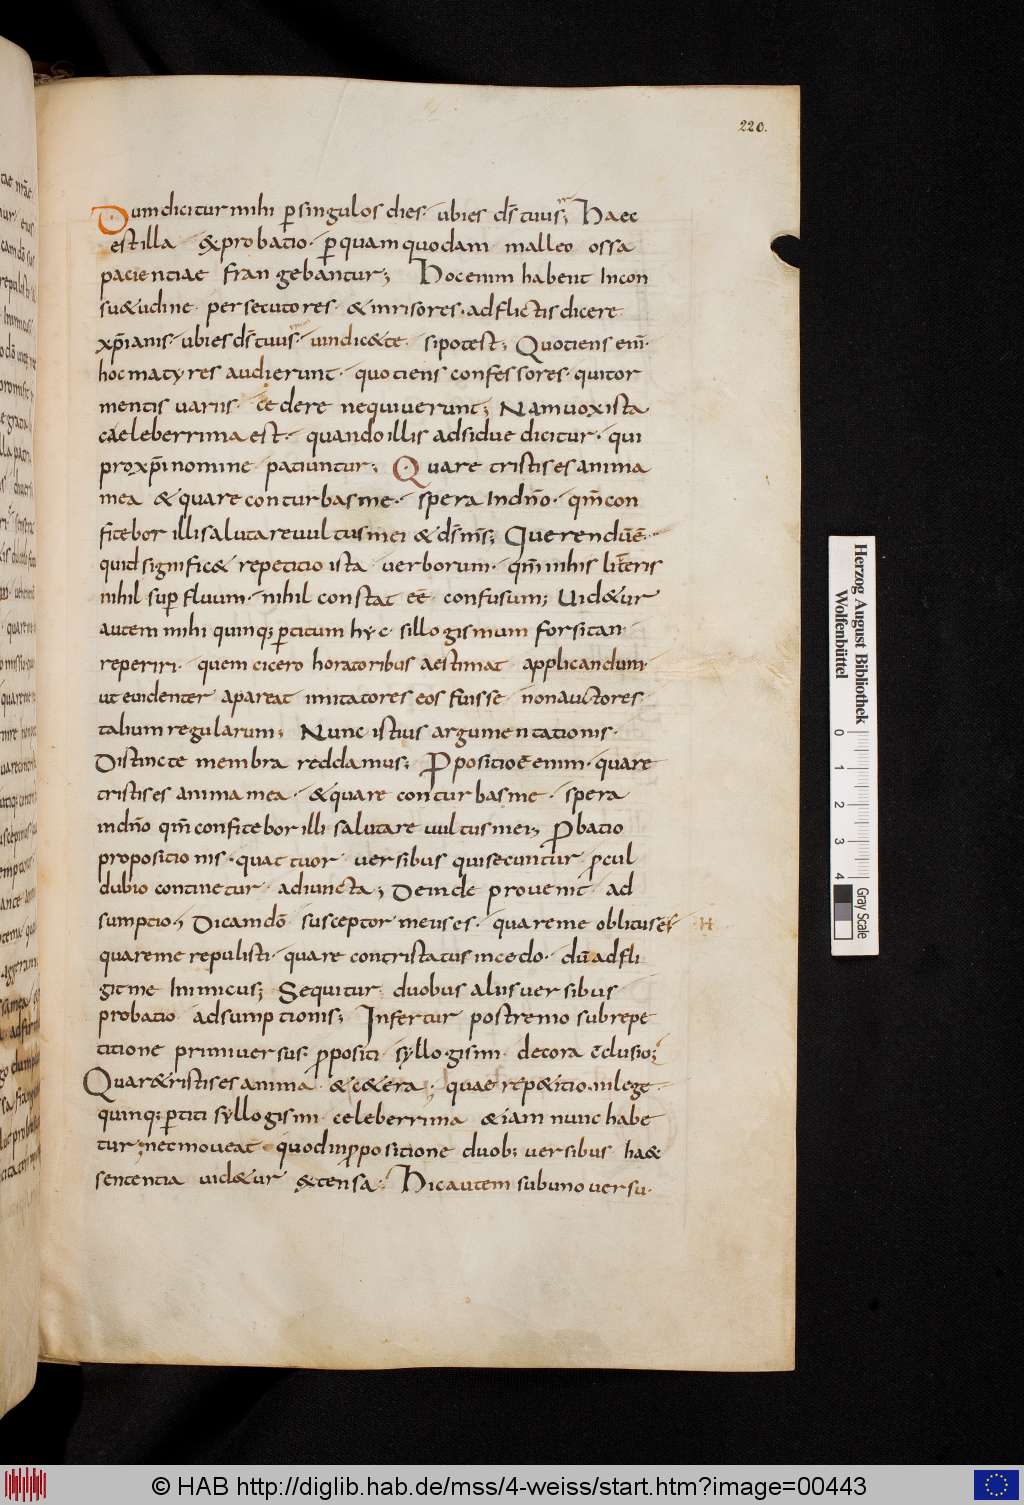 220.
Dum dicitur mihi ꝑ singulos dies· ubi es d̄s tuus; Haec
est illa &probatio· ꝑquam quodam malleo ossa
pacientiae frangebantur; Hoc enim habent Incon
su&udine· persecutores· & inrisores· adflictis dicere
xp̄ianis· ubi es d̄s tuus· uindic& te· si potest; Quotiens eni͂·
hoc matyres audierunt· quotiens confessores· qui tor
mentis uariis· cedere nequiuerunt; Nam uox ista
caeleberrima est· quando illis adsidue dicitur· qui
pro xp̄i nomine patiuntur; Quare tristis es anima
mea & quare conturbas me· spera In dn̄o· qm̄ con
fitebor illi salutare uultus mei & d̄s m̄s; Querendū ē·
quid signific& repeticio ista uerborum· qm̄ in his litteris
nihil suꝑfluum· nihil constat eē confusum; Uid&ur
autem mihi quinq; ꝑtitum hyc sillogismum forsitan
reperiri· quem cicero horatoribus aestimat applicandum·
ut euidenter apareat imitatores eos fuisse non auctores·
talium regularum; Nunc istius argumentationis·
Distincte membra reddamus; Ꝓpositio ē enim· quare
tristis es anima mea· & quare conturbas me· spera
in dn̄o qm̄ confitebor illi salutare uultus mei; Ꝓbatio
propositionis· quattuor uersibus qui secuntur ꝓcul
dubio continetur adiuncta; Deinde prouenit ad
sumptio; Dicam dō susceptor meus es· quare me oblitus es
quare me repulisti· quare contristatus incedo· dū adfli
git me Inimicus; Sequitur duobus aliis uersibus
probatio adsumptionis; Infertur postremo sub repe
titione primi uersus ꝓpositi syllogismi decora c̄clusio;
Quare tristis es anima & c&era· quae rep&itio in lege
quinq; ꝑtiti syllogismi celeberrima & iam nunc habe
tur; nec moueat quod in ꝓpositione duob; uersibus ha&
sententia uid&ur &tensa; Hic autem sub uno uersu·
Herzog August Bibliothek
Wolfenbüttel
0 1 2 3 4
Gray Scale
© HAB http://diglib.hab.de/mss/4-weiss/start.htm?image=00443